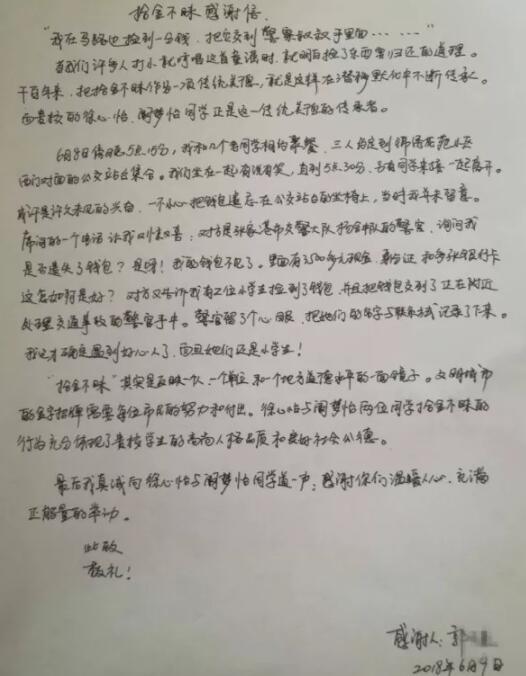 拾金不昧感谢信
“我在马路边捡到一分钱,把它交到警察叔叔手里面······”
当我们许多人打小就哼唱这首童谣时,就明白捡了东西要归还的道理。
千百年来,把拾金不昧作为一项传统美德,就是这样在潜移默化中不断传承。
而贵校的徐心怡、阚梦怡同学正是这一传统美德的传承者。
6月8日傍晚5点15分,我和几个老同学相约聚餐,三人约定到
西门对面的公交站台集合。我们坐在一起有说有笑,直到5点30分,另有同学来接一起离开。
或许是许久未见的兴奋,一不小心把钱包遗忘在公交站台的坐椅上,当时我并未留意。
席间的一个电话让我又惊又喜:对方是张家港市交警大队杨舍中队的警官,询问我
是否遗失了钱包?是呀!我的钱包不见了。里面有3500多元现金、身份证和多张银行卡
这怎如何是好?对方又告诉我有2位小学生捡到了钱包,并且把钱包交到了正在附近
处理交通事故的警官手中。警官留了个心眼,把她们的名字与联系方式记录了下来。
我这才确定遇到好心人了,而且她们还是小学生!
“拾金不昧”其实是反映一个人、一个单位和一个地方道德水平的一面镜子。文明城市
的金字招牌需要每位市民的努力和付出。徐心怡与阚梦怡两位同学拾金不昧的
行为充分体现了贵校学生的高尚人格品质和良好社会公德。
最后我真诚向徐心怡与阚梦怡同学道一声:感谢你们温暖人心、充满
正能量的举动。
此致
敬礼!
感谢人:郭
2018年6月9日